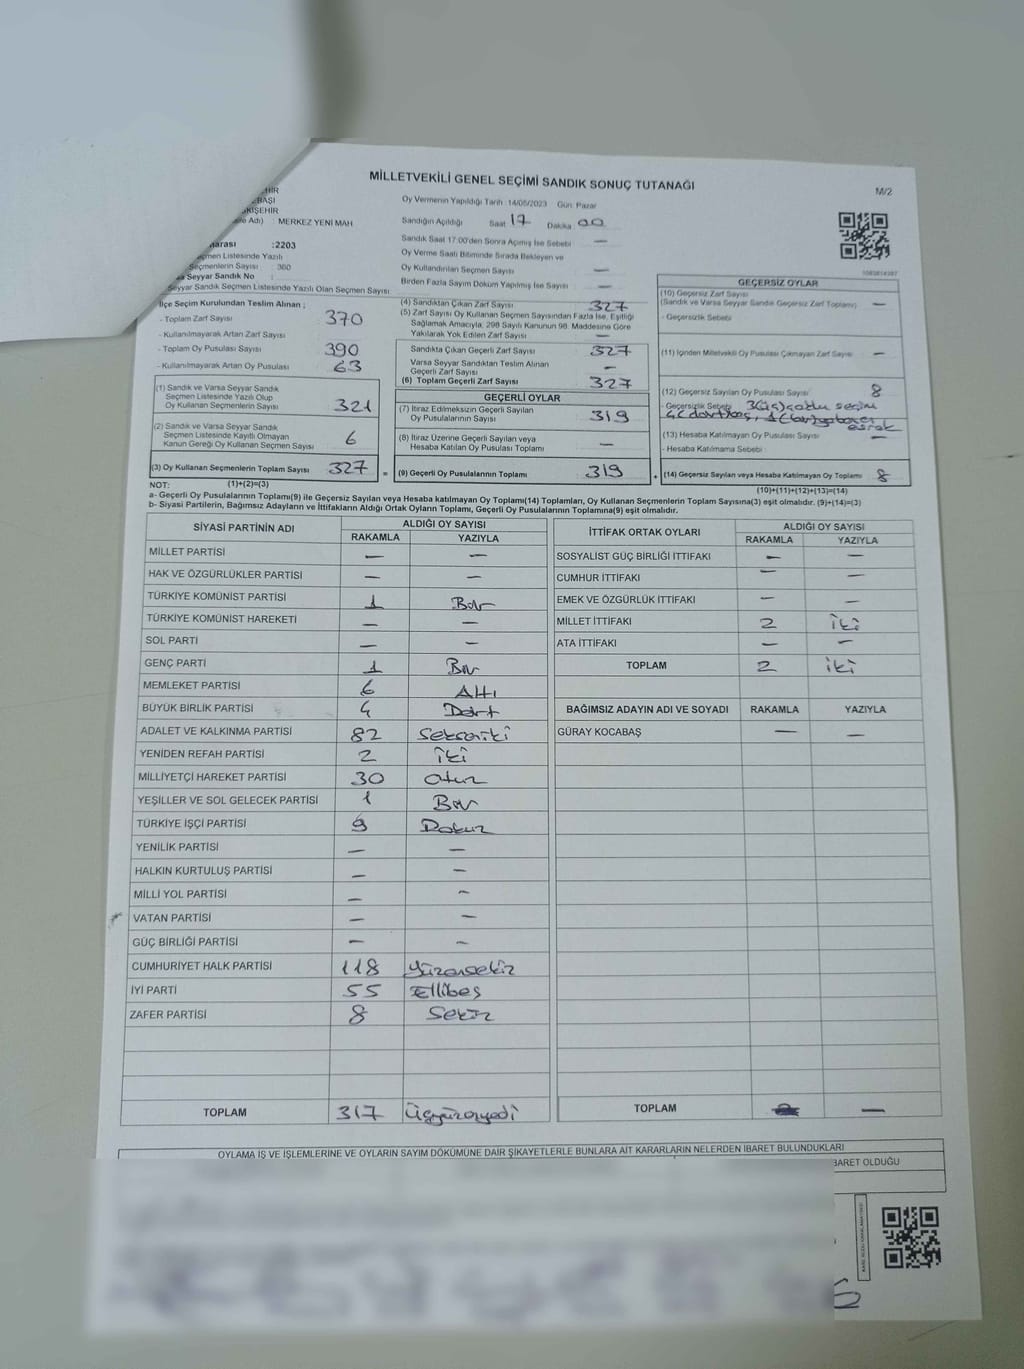 MİLLETVEKİLİ GENEL SEÇİMİ SANDIK SONUÇ TUTANAĞI
M/2
HİR
EBAŞI
KİŞEHİR
Adı) : MERKEZ YENİ MAH
arası :2203
Seçmen Listesinde Yazılı
Seçmenlerin Sayısı 360
Seyyar Sandık No :
Seyyar Sandık Seçmen Listesinde Yazılı Olan Seçmen Sayısı
Oy Vermenin Yapıldığı Tarih :14/05/2023 Gün: Pazar
Sandığın Açıldığı Saat 17 Dakika 00
Sandık Saat 17:00'den Sonra Açılmış İse Sebebi —
Oy Verme Saati Bitiminde Sırada Bekleyen ve
Oy Kullandırılan Seçmen Sayısı —
Birden Fazla Sayım Döküm Yapılmış İse Sayısı —
İlçe Seçim Kurulundan Teslim Alınan ;
- Toplam Zarf Sayısı 370
- Kullanılmayarak Artan Zarf Sayısı
- Toplam Oy Pusulası Sayısı 390
- Kullanılmayarak Artan Oy Pusulası 63
(1) Sandık ve Varsa Seyyar Sandık
Seçmen Listesinde Yazılı Olup
Oy Kullanan Seçmenlerin Sayısı 321
(2) Sandık ve Varsa Seyyar Sandık
Seçmen Listesinde Kayıtlı Olmayan
Kanun Gereği Oy Kullanan Seçmen Sayısı 6
(3) Oy Kullanan Seçmenlerin Toplam Sayısı 327 =
(4) Sandıktan Çıkan Zarf Sayısı 327
(5) Zarf Sayısı Oy Kullanan Seçmen Sayısından Fazla İse, Eşitliği
Sağlamak Amacıyla, 298 Sayılı Kanunun 98. Maddesine Göre
Yakılarak Yok Edilen Zarf Sayısı —
Sandıkta Çıkan Geçerli Zarf Sayısı 327
Varsa Seyyar Sandıktan Teslim Alınan
Geçerli Zarf Sayısı —
(6) Toplam Geçerli Zarf Sayısı 327
GEÇERLİ OYLAR
(7) İtiraz Edilmeksizin Geçerli Sayılan
Oy Pusulalarının Sayısı 319
(8) İtiraz Üzerine Geçerli Sayılan veya
Hesaba Katılan Oy Pusulası Sayısı —
(9) Geçerli Oy Pusulalarının Toplamı 319 +
GEÇERSİZ OYLAR
(10) Geçersiz Zarf Sayısı
(Sandık ve Varsa Seyyar Sandık Geçersiz Zarf Toplamı) —
- Geçersizlik Sebebi
(11) İçinden Milletvekili Oy Pusulası Çıkmayan Zarf Sayısı —
(12) Geçersiz Sayılan Oy Pusulası Sayısı 8
- Geçersizlik Sebebi 3(üç) çoklu seçim
4(dört) boş, 1(bir)
(13) Hesaba Katılmayan Oy Pusulası Sayısı —
- Hesaba Katılmama Sebebi :
(14) Geçersiz Sayılan veya Hesaba Katılmayan Oy Toplamı 8
NOT: (1)+(2)=(3)
(10)+(11)+(12)+(13)=(14)
a- Geçerli Oy Pusulalarının Toplamı(9) ile Geçersiz Sayılan veya Hesaba katılmayan Oy Toplamı(14) Toplamları, Oy Kullanan Seçmenlerin Toplam Sayısına(3) eşit olmalıdır. (9)+(14)=(3)
b- Siyasi Partilerin, Bağımsız Adayların ve İttifakların Aldığı Ortak Oyların Toplamı, Geçerli Oy Pusulalarının Toplamına(9) eşit olmalıdır.
SİYASİ PARTİNİN ADI ALDIĞI OY SAYISI
RAKAMLA YAZIYLA
MİLLET PARTİSİ — —
HAK VE ÖZGÜRLÜKLER PARTİSİ — —
TÜRKİYE KOMÜNİST PARTİSİ 1 Bir
TÜRKİYE KOMÜNİST HAREKETİ — —
SOL PARTİ — —
GENÇ PARTİ 1 Bir
MEMLEKET PARTİSİ 6 Altı
BÜYÜK BİRLİK PARTİSİ 4 Dört
ADALET VE KALKINMA PARTİSİ 82 Sekseniki
YENİDEN REFAH PARTİSİ 2 İki
MİLLİYETÇİ HAREKET PARTİSİ 30 Otuz
YEŞİLLER VE SOL GELECEK PARTİSİ 1 Bir
TÜRKİYE İŞÇİ PARTİSİ 9 Dokuz
YENİLİK PARTİSİ — —
HALKIN KURTULUŞ PARTİSİ — —
MİLLİ YOL PARTİSİ — —
VATAN PARTİSİ — —
GÜÇ BİRLİĞİ PARTİSİ — —
CUMHURİYET HALK PARTİSİ 118 Yüzonsekiz
İYİ PARTİ 55 Ellibeş
ZAFER PARTİSİ 8 Sekiz
TOPLAM 317 Üçyüzonyedi
İTTİFAK ORTAK OYLARI ALDIĞI OY SAYISI
RAKAMLA YAZIYLA
SOSYALİST GÜÇ BİRLİĞİ İTTİFAKI — —
CUMHUR İTTİFAKI — —
EMEK VE ÖZGÜRLÜK İTTİFAKI — —
MİLLET İTTİFAKI 2 İki
ATA İTTİFAKI — —
TOPLAM 2 İki
BAĞIMSIZ ADAYIN ADI VE SOYADI RAKAMLA YAZIYLA
GÜRAY KOCABAŞ — —
TOPLAM —
OYLAMA İŞ VE İŞLEMLERİNE VE OYLARIN SAYIM DÖKÜMÜNE DAİR ŞİKAYETLERLE BUNLARA AİT KARARLARIN NELERDEN İBARET BULUNDUKLARI
BARET OLDUĞU